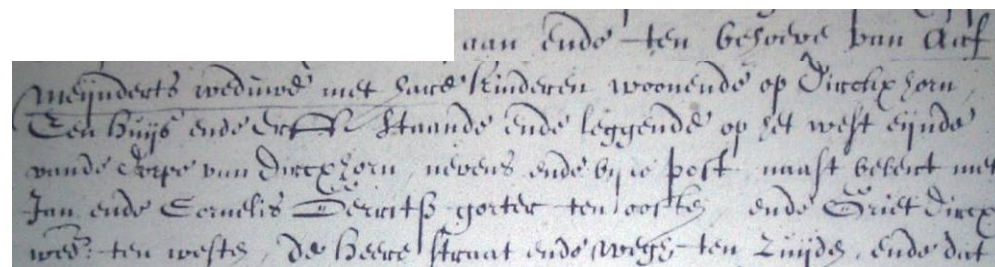 aan ende ten behoeve van Aef
Meijnderts weduwe met hare kinderen woonende op Dirckxhorn,
Een huijs ende Erff staande ende leggende op het west eijnde
vande dorpe van Dircxhorn, nevens ende bij de post naast belent met
Jan ende Cornelis Gerritsz gorter ten oosten ende Griet Dircx
wed: ten westen, de heere straat ende wegh ten zuijden, ende dat